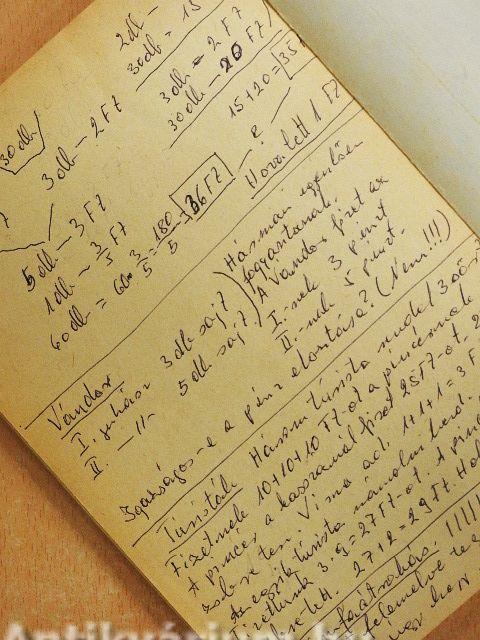 2db —
30db = 15
3db = 2 Ft
30db — 20 Ft
15+20 = 35
30db
3db — 2 Ft
5db — 3 Ft
1db — 3/5 Ft
60db = 60·3/5 = 180/5 = 36 Ft
Hova lett 1 Ft
Vándor
I. juhász 3db sajt
II. —"— 5db sajt
Hárman egyenlően
fogyasztanak.
A Vándor fizet az
I.-nek 3 pénzt
II.-nek 5 pénzt.
Igazságos-e a pénz elosztása? (Nem!!!)
Turisták Három turista rendel 3
Fizetnek 10+10+10 Ft-ot a pincérnek
A pincér a kasszánál fizet 25 Ft-ot. 2
zsebre tesz. Vissza ad. 1+1+1 = 3 F
Az egyik turista számolni kezd.
fizettünk 3·9 = 27 Ft-ot. A pin
27+2 = 29 Ft. Hol
Antikvárium.hu